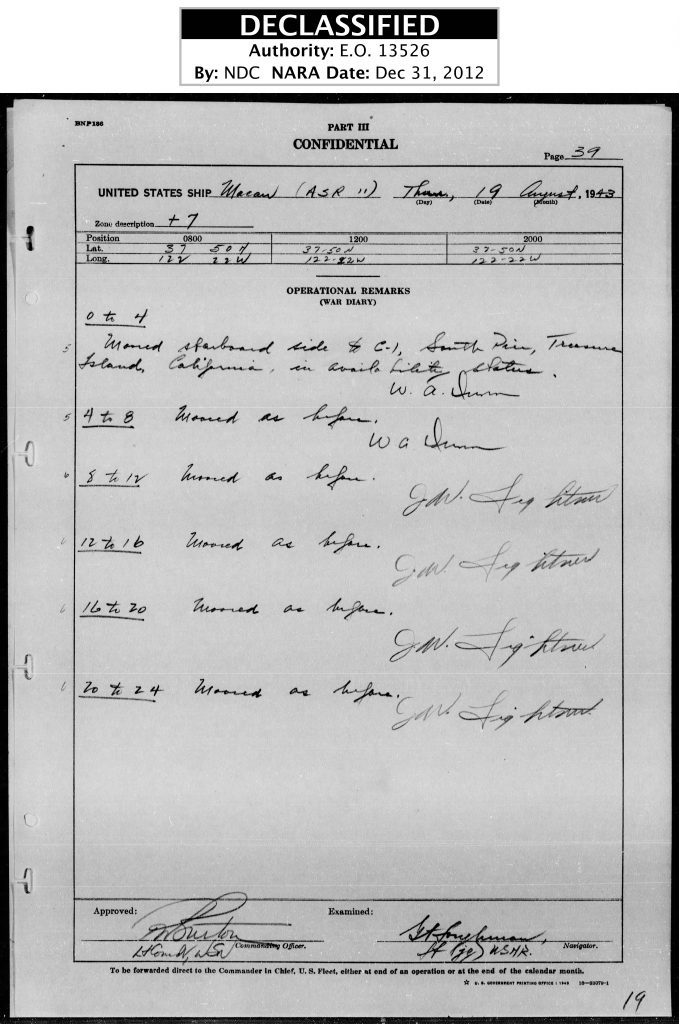 DECLASSIFIED
Authority: E.O. 13526
By: NDC NARA Date: Dec 31, 2012
BNP 186
PART III
CONFIDENTIAL
Page 39
UNITED STATES SHIP Macaw (ASR 11) Thurs., 19 August, 1943
(Day) (Date) (Month)
Zone description +7
Position 0800 1200 2000
Lat. 37 50 N 37-50 N 37-50 N
Long. 122 22 W 122-22 W 122-22 W
OPERATIONAL REMARKS
(WAR DIARY)
0 to 4
5 Moored starboard side to C-1, South Pier, Treasure
Island, California, in availability status.
W. A. Dunn
5 4 to 8 Moored as before.
W A Dunn
6 8 to 12 Moored as before.
J.W. Lightner
6 12 to 16 Moored as before.
J.W. Lightner
6 16 to 20 Moored as before.
J.W. Lightner
6 20 to 24 Moored as before.
J.W. Lightner
Approved: Examined:
Commanding Officer. Navigator.
Lt Comdr, USN Lt (jg) USNR.
To be forwarded direct to the Commander in Chief, U. S. Fleet, either at end of an operation or at the end of the calendar month.
☆ U. S. GOVERNMENT PRINTING OFFICE : 1943
19